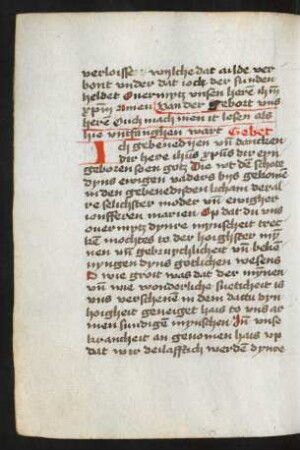 verloisse wylche dat alde ver
bont under dat iock der sunden
heldet Overmytz unsen heren ihm
xpm Amen van der gebort uns
heren Ouch mach men it lesen als
hie untfanghen wart Gebet
Ich gebenedijen un dancken
dir here ihus xpus dir eyn
geboren soen gotz Die vā dē schois
dyns ewigen vaders bys gekomen
in den gebenedijden licham der al
re selichster moder un ewigher
jonfferen marien Op dat du uns
overmytz dynre mynscheit trec
ken mochtes to der hoighster myn
nen un gebruychlicheit un beken
nyngen dyns gotlichen wesens
O wie groit was dat der mynen
un wie wonderliche sueticheit is
uns verschenen in dem dattu dyn
hoigheit geneiget hais to uns ar
men sundigen mynschen In unse
krancheit an genomen hais up
dat wir deilafftich werden dynre